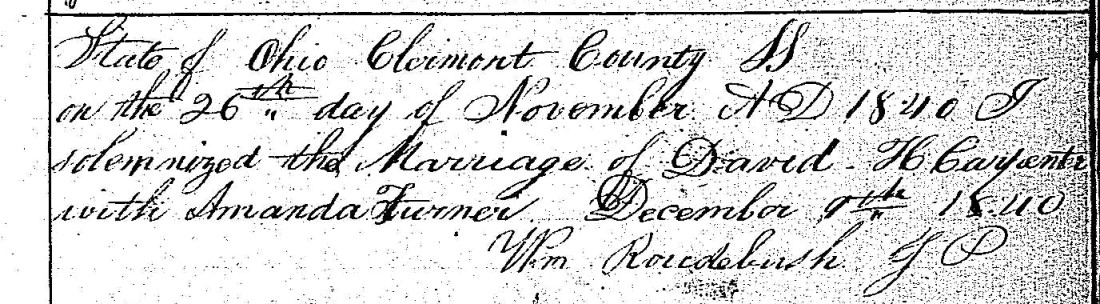 State of Ohio Clermont County SS
on the 26th day of November A D 1840 I
solemnized the Marriage of David H Carpenter
with Amanda Turner December 9th 1840
Wm Roudebush J P